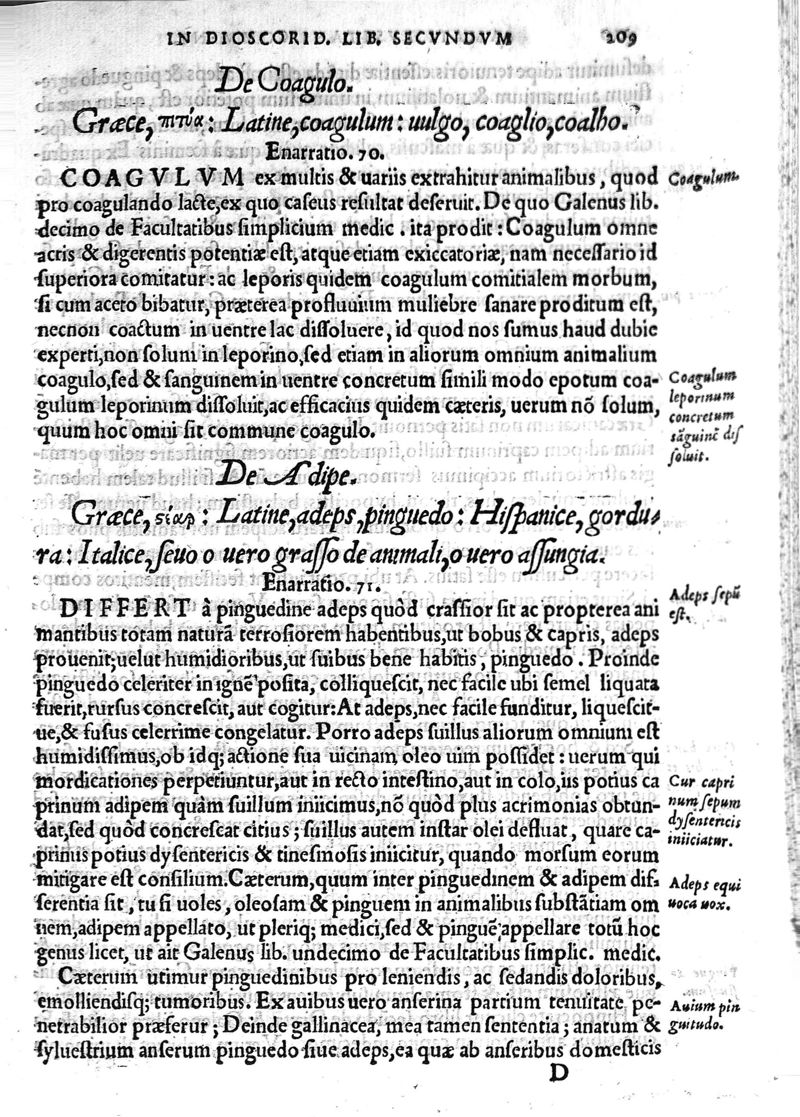 IN DIOSCORID. LIB. SECVNDVM 209
De Coagulo.
Græce, πιτύα: Latine, coagulum: uulgo, coaglio, coalho.
Enarratio. 70.
COAGVLVM ex multis & uariis extrahitur animalibus, quod
pro coagulando lacte, ex quo caseus resultat deseruit. De quo Galenus lib.
decimo de Facultatibus simplicium medic. ita prodit: Coagulum omne
acris & digerentis potentiæ est, atque etiam exiccatoriæ, nam necessario id
superiora comitatur: ac leporis quidem coagulum comitialem morbum,
si cum aceto bibatur, præterea profluuium muliebre sanare proditum est,
necnon coactum in uentre lac dissoluere, id quod nos sumus haud dubie
experti, non solum in leporino, sed etiam in aliorum omnium animalium
coagulo, sed & sanguinem in uentre concretum simili modo epotum coa-
gulum leporinum dissoluit, ac efficacius quidem cæteris, uerum nõ solum,
quum hoc omni sit commune coagulo.
Coagulum.
Coagulum
leporinum
concretum
sãguinẽ dis
soluit.
De Adipe.
Græce, ςέαρ: Latine, adeps, pinguedo: Hispanice, gordu-
ra: Italice, seuo o uero grasso de animali, o uero assungia.
Enarratio. 71.
DIFFERT à pinguedine adeps quòd crassior sit ac propterea ani
mantibus totam naturã terrosiorem habentibus, ut bobus & capris, adeps
prouenit; uelut humidioribus, ut suibus bene habitis, pinguedo. Proinde
pinguedo celeriter in ignẽ posita, colliquescit, nec facile ubi semel liquata
fuerit, rursus concrescit, aut cogitur: At adeps, nec facile funditur, liquescit-
ue, & fusus celerrime congelatur. Porro adeps suillus aliorum omnium est
humidissimus, ob idq; actione sua uicinam, oleo uim possidet: uerum qui
mordicationes perpetiuntur, aut in recto intestino, aut in colo, iis potius ca
prinum adipem quàm suillum iniicimus, nõ quòd plus acrimonias obtun-
dat, sed quòd concrescat citius; suillus autem instar olei defluat, quare ca-
prinus potius dysentericis & tinesmosis iniicitur, quando morsum eorum
mitigare est consilium. Cæterum, quum inter pinguedinem & adipem dif-
ferentia sit, tu si uoles, oleosam & pinguem in animalibus substãtiam om
nem, adipem appellato, ut pleriq; medici, sed & pinguẽ, appellare totũ hoc
genus licet, ut ait Galenus lib. undecimo de Facultatibus simplic. medic.
Cæterum utimur pinguedinibus pro leniendis, ac sedandis doloribus,
emolliendisq; tumoribus. Ex auibus uero anserina partium tenuitate pe-
netrabilior præfertur; Deinde gallinacea, mea tamen sententia; anatum &
syluestrium anserum pinguedo siue adeps, ea quæ ab anseribus domesticis
Adeps sepũ
est.
Cur capri
num sepum
dysentericis
iniiciatur.
Adeps equi
uoca uox.
Auium pin
guitudo.
D